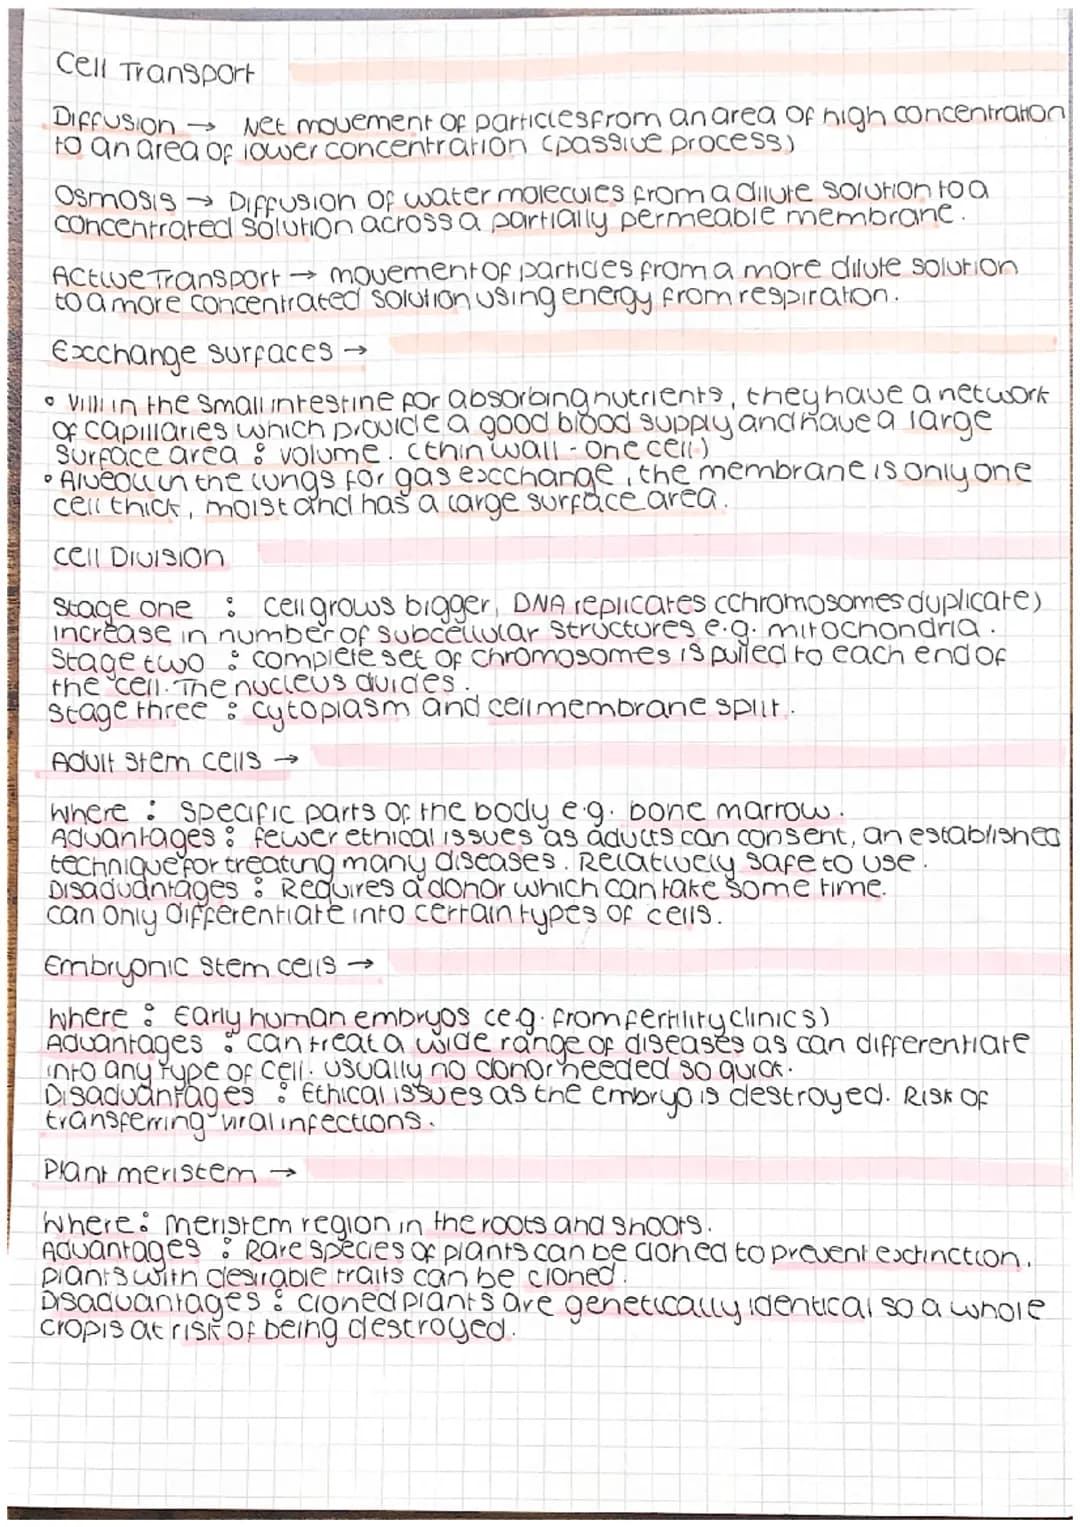 Cell Transport
Diffusion → Net movement of particles from an area of high concentration
to an area of lower concentration (passive process)
Osmosis → Diffusion of water molecules from a dilute solution to a
concentrated solution across a partially permeable membrane.
Active Transport → movement of particles from a more dilute solution
to a more concentrated solution using energy from respiration.
Excchange surfaces →
• Villi in the small intestine for absorbing nutrients, they have a network
of capillaries which provide a good blood supply and have a large
surface area : volume. (thin wall - one cell)
• Alveoli in the lungs for gas excchange, the membrane is only one
cell thick, moist and has a large surface area.
Cell Division
Stage one : cell grows bigger, DNA replicates (chromosomes duplicate)
increase in number of subcellular structures e.g. mitochondria.
Stage two : complete set of chromosomes is pulled to each end of
the cell. The nucleus divides.
Stage three : cytoplasm and cell membrane split.
Adult stem cells →
Where : Specific parts of the body e.g. bone marrow.
Advantages : fewer ethical issues as adults can consent, an established
technique for treating many diseases. Relatively safe to use.
Disadvantages : Requires a donor which can take some time.
can only differentiate into certain types of cells.
Embryonic stem cells →
Where : Early human embryos (e.g. from fertility clinics)
Advantages : can treat a wide range of diseases as can differentiate
into any type of cell. usually no donor needed so quick.
Disadvantages : Ethical issues as the embryo is destroyed. Risk of
transferring viral infections.
Plant meristem →
Where : meristem region in the roots and shoots.
Advantages : Rare species of plants can be cloned to prevent exctinction.
plants with desirable traits can be cloned.
Disadvantages : cloned plants are genetically identical so a whole
crop is at risk of being destroyed.